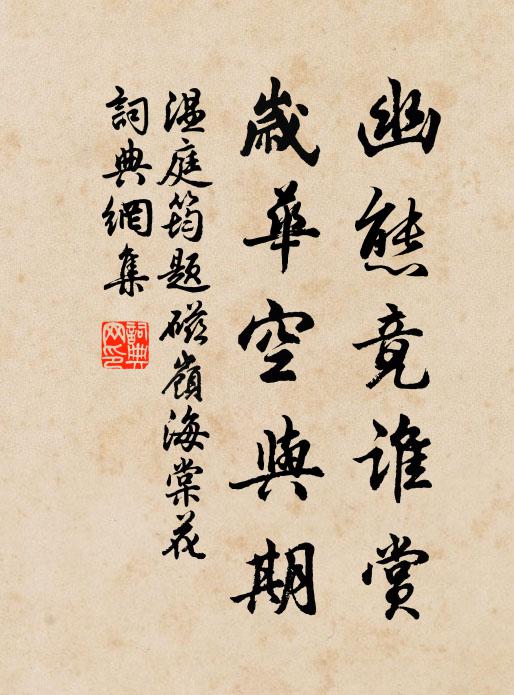 幽態竟誰賞
歲華空與期
温庭筠題磁嶺海棠花
詞典網集
詞典網印